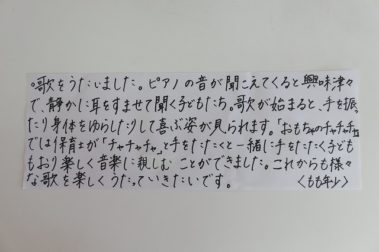 。歌をうたいました。ピアノの音が聞こえてくると興味津々
で、静かに耳をすませて聞く子どもたち。歌が始まると、手を振っ
たり身体をゆらしたりして喜ぶ姿が見られます。「おもちゃのチャチャチャ」
では保育士が「チャチャチャ」と手をたたくと一緒に手をたたく子ども
もおり楽しく音楽に親しむことができました。これからも様々
な歌を楽しくうたっていきたいです。